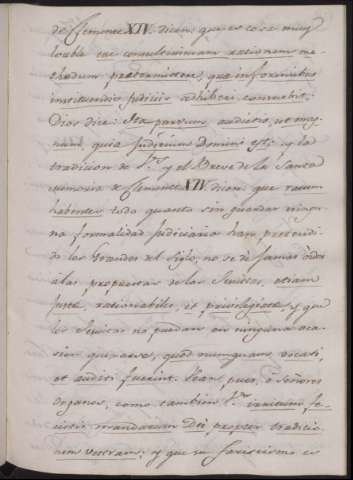 de Clemente XIV. dicen; que es cosa muy
louble eac consulcimiam rationem me-
thodum praetermittere, quae in formalibus
instituendis judiciis adhiberi consuevit.
Dios dice: Ita parvum audietis, ut mag-
num, quia Judicium Domini est; y la
tradicion de S.res y el Breve de la Santa
memoria de Clemente XIV. dicen, que ratum
habentes todo quanto sin guardar ningu-
na formalidad judiciaria han pretendi-
do los Grandes del Siglo, no se de jamas oidos
a las propuestas de los Jesuitas, etiam
justa, rationabilia, et privilegiata, y que
los Jesuitas no puedan en ninguna oca-
sion quexarse, quod nunquam vocati,
et auditi fuerint. Vean, pues, o Señores
Organos, como tambien S.res irritum fe-
cistis mandatum Dei propter traditio-
nem vestram; y que su fariseismo es